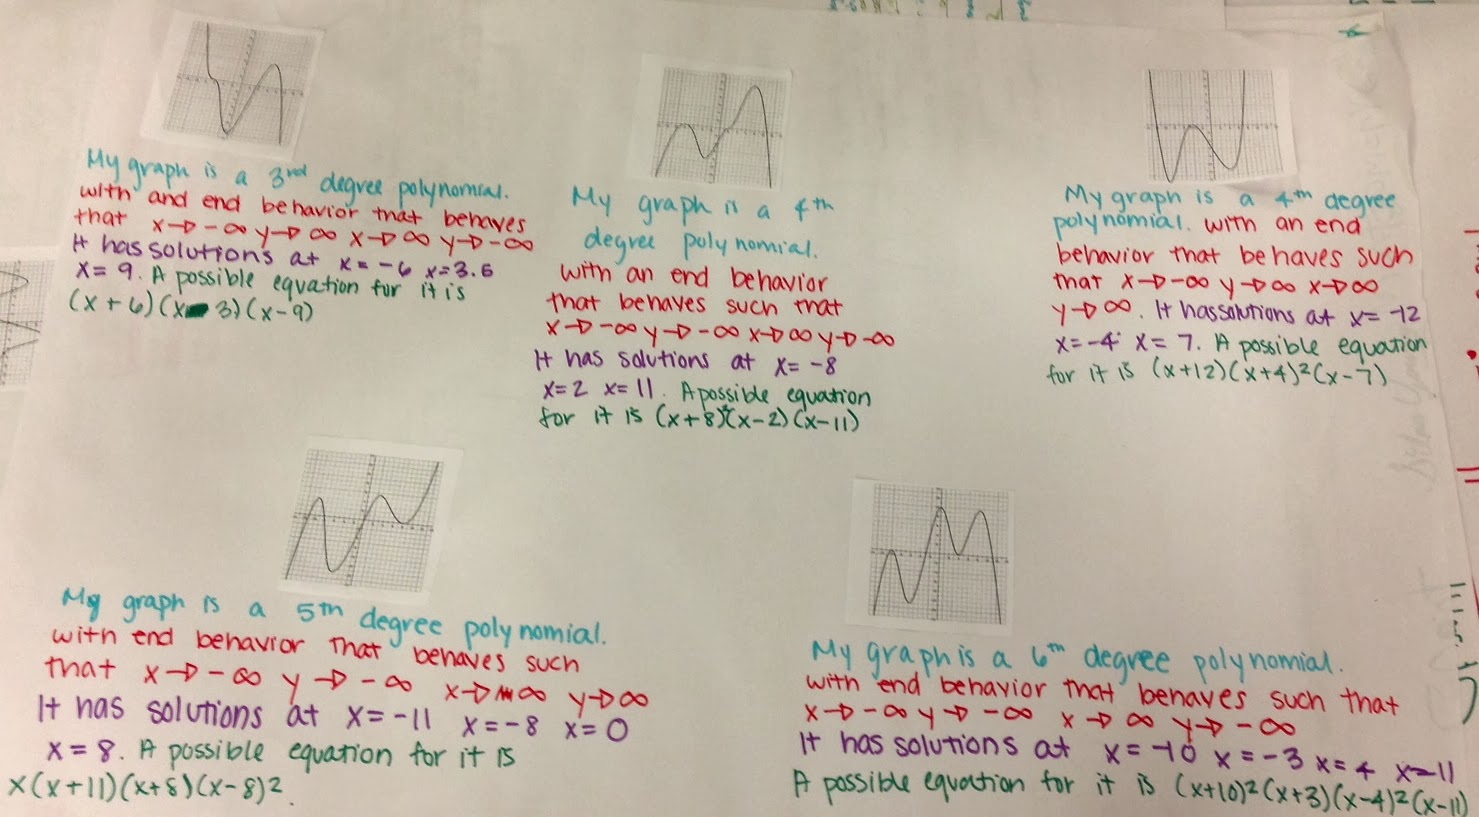 My graph is a 3rd degree polynomial.
with and end behavior that behaves
that x→-∞ y→∞ x→∞ y→-∞
It has solutions at x=-6 x=3.5
x=9. A possible equation for it is
(x+6)(x-3)(x-9)
My graph is a 4th
degree polynomial.
with an end behavior
that behaves such that
x→-∞ y→-∞ x→∞ y→-∞
It has solutions at x=-8
x=2 x=11. A possible equation
for it is (x+8)²(x-2)(x-11)
My graph is a 4th degree
polynomial. with an end
behavior that behaves such
that x→-∞ y→∞ x→∞
y→∞. It has solutions at x=-12
x=-4 x=7. A possible equation
for it is (x+12)(x+4)²(x-7)
My graph is a 5th degree polynomial.
with end behavior that behaves such
that x→-∞ y→-∞ x→∞ y→∞
It has solutions at x=-11 x=-8 x=0
x=8. A possible equation for it is
x(x+11)(x+8)(x-8)².
My graph is a 6th degree polynomial.
with end behavior that behaves such that
x→-∞ y→-∞ x→∞ y→-∞
It has solutions at x=-10 x=-3 x=4 x=11
A possible equation for it is (x+10)²(x+3)(x-4)²(x-11)